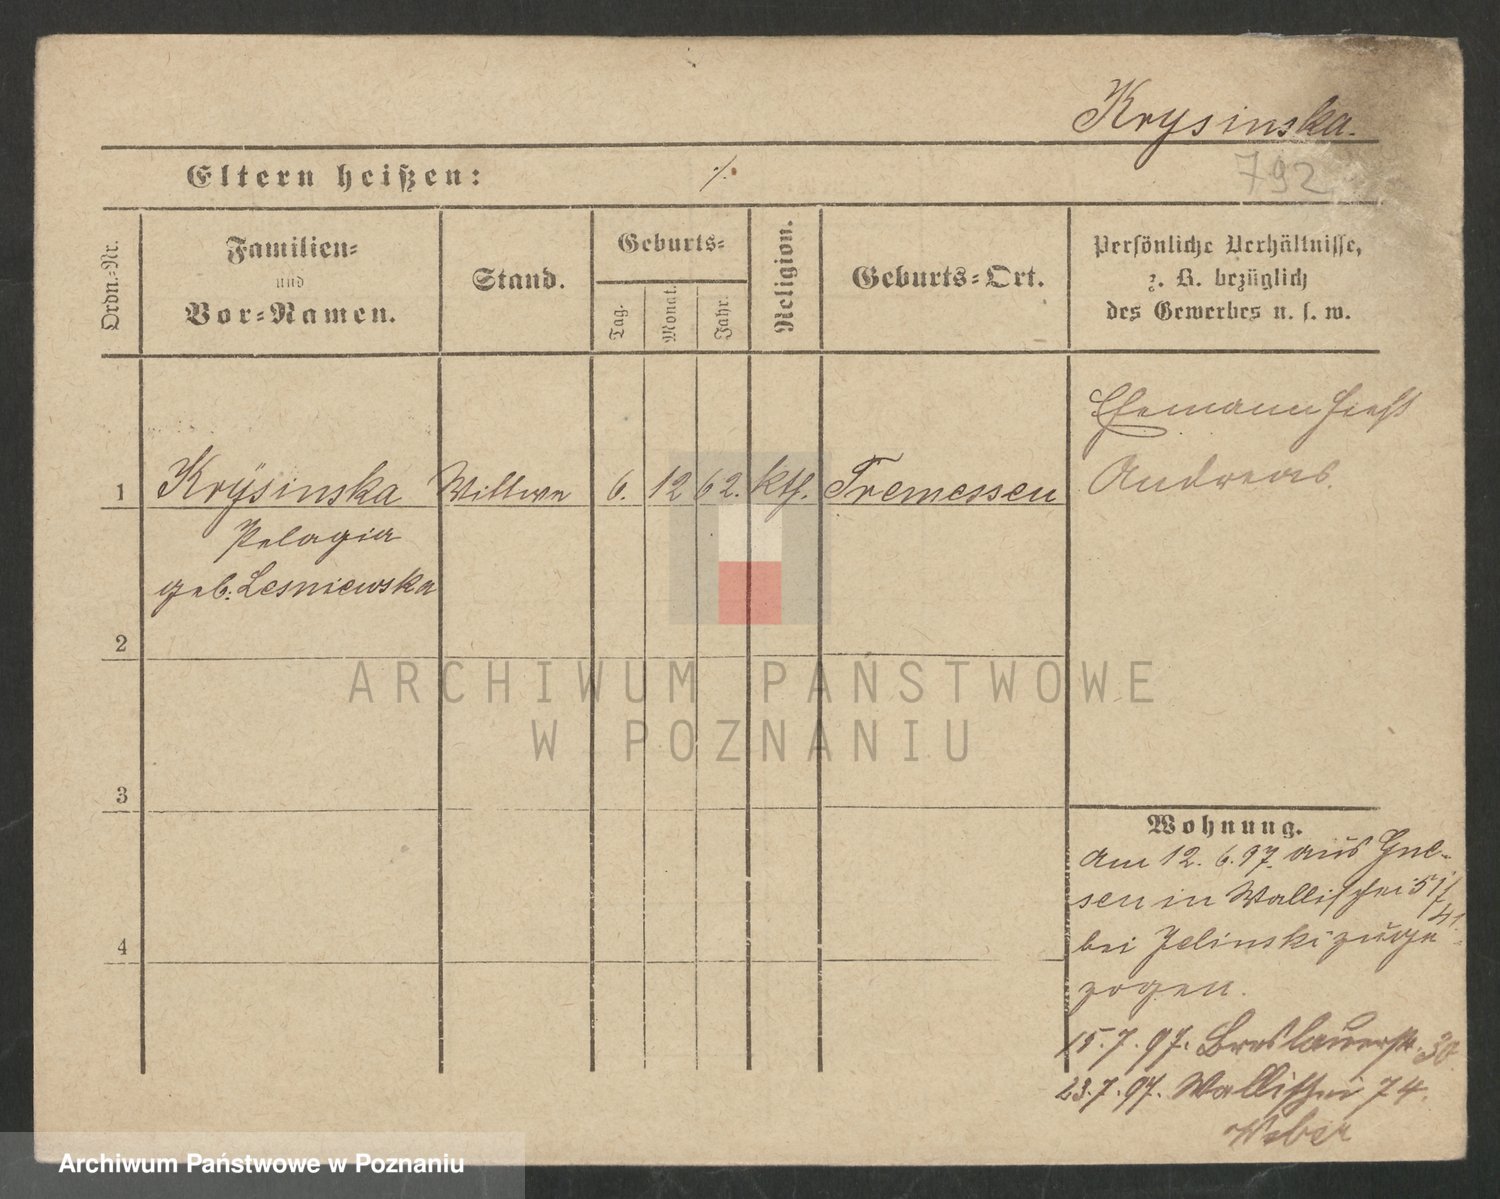 Krysinska.
792
Eltern heißen: ·/.
Ordn.-Nr.
Familien-
und
Vor-Namen.
Stand.
Geburts-
Tag.
Monat.
Jahr.
Religion.
Geburts-Ort.
Persönliche Verhältnisse,
z. B. bezüglich
des Gewerbes u. s. w.
Ehemann hieß
Andreas.
1 Krysinska Wittwe 6. 12 62. kth. Tremessen
Pelagia
geb. Lesniewska
2
3
4
Wohnung.
Am 12. 6. 97. aus Gne-
sen in Wallischei 51/
/41.
bei Jelinski zuge
zogen.
15. 7. 97. Breslauerstr. 30
23. 7. 97. Wallischei 74.
Weber
ARCHIWUM PAŃSTWOWE
W POZNANIU
Archiwum Państwowe w Poznaniu